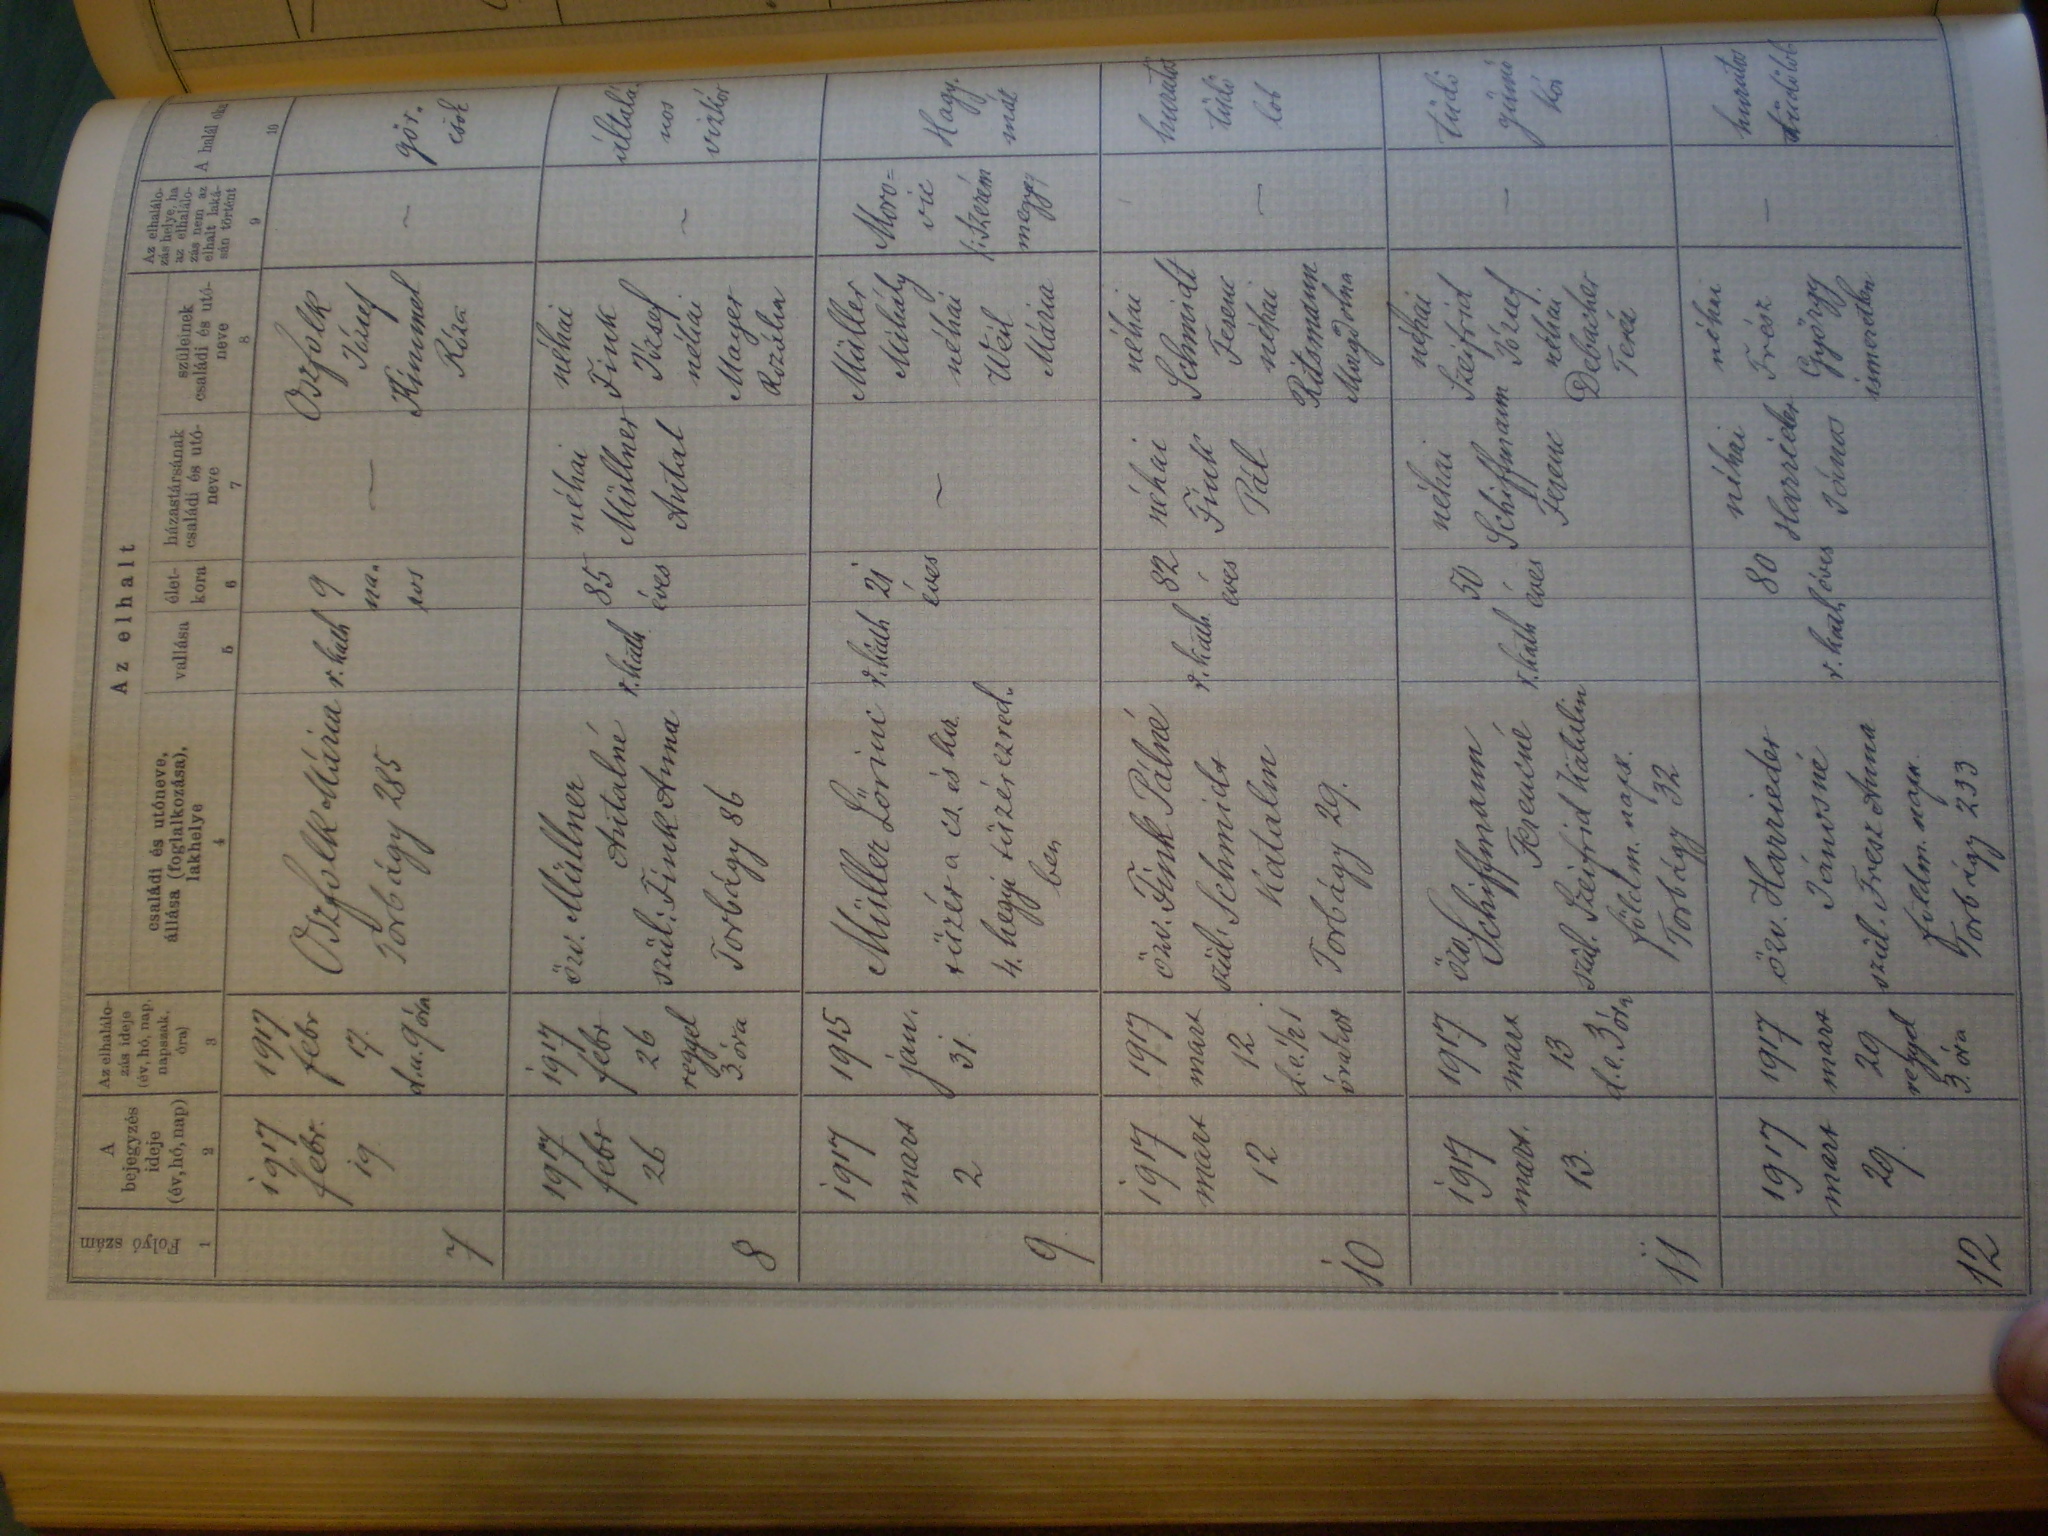 Az elhalt
Folyó szám
A bejegyzés ideje (év, hó, nap)
Az elhalálozás ideje (év, hó, nap, napszak, óra)
családi és utóneve, állása (foglalkozása), lakhelye
vallása
életkora
házastársának családi és utóneve
szüleinek családi és utóneve
Az elhalálozás helye, ha az elhalálozás nem az elhalt lakásán történt
A halál oka
1 2 3 4 5 6 7 8 9 10
7
1917
febr.
19
1917
febr
17.
d.u. 9 óra
Oszfolk Mária
Torbágy 285
r. kath
9
ha.
vos
—
Oszfolk
József
Kimmel
Róza
~
gör.
csök
8
1917
febr
26
1917
febr
26
reggel
3 óra
özv. Müllner
Antalné
szül: Fink Anna
Torbágy 86
r. kath
85
éves
néhai
Müllner
Antal
néhai
Fink
József
néhai
Mayer
Rozália
~
általá
nos
vizkór
9
1917
mart
2
1915
jan.
31.
Müller Lőrinc
tüzér a cs. és kir.
4. hegyi tüzérezred.
ben
r. kath
21
éves
~
Müller
Mihály
néhai
Weil
Mária
Moro=
vic
Szerém
megye
Hagy.
máz
10
1917
mart
12
1917
mart
12
d.e. ½1
órakor
özv. Fink Pálné
szül: Schmidt
Katalin
Torbágy 29.
r. kath.
82
éves
néhai
Fink
Pál
néhai
Schmidt
Ferenc
néhai
Ritsmann
Magdolna
~
hurutos
tüdő
lob
11
1917
mart.
13.
1917
mart
13
d.e. 3 óra
özv.
Schiffmann
Ferencné
szül. Szeifrid Katalin
földm. naps.
Torbágy 32
r. kath
50
éves
néhai
Schiffmann
Ferenc
néhai
Szeifrid
József
néhai
Debacher
Teréz
—
tüdő
gümő
kór
12
1917
mart
29.
1917
mart
29
reggel
3. óra
özv. Harrieder
Jánosné
szül. Fresz Anna
földm. nap.
Torbágy 233
r. kath
80
éves
néhai
Harrieder
János
néhai
Frész
György
ismeretlen
—
hurutos
tüdőlob